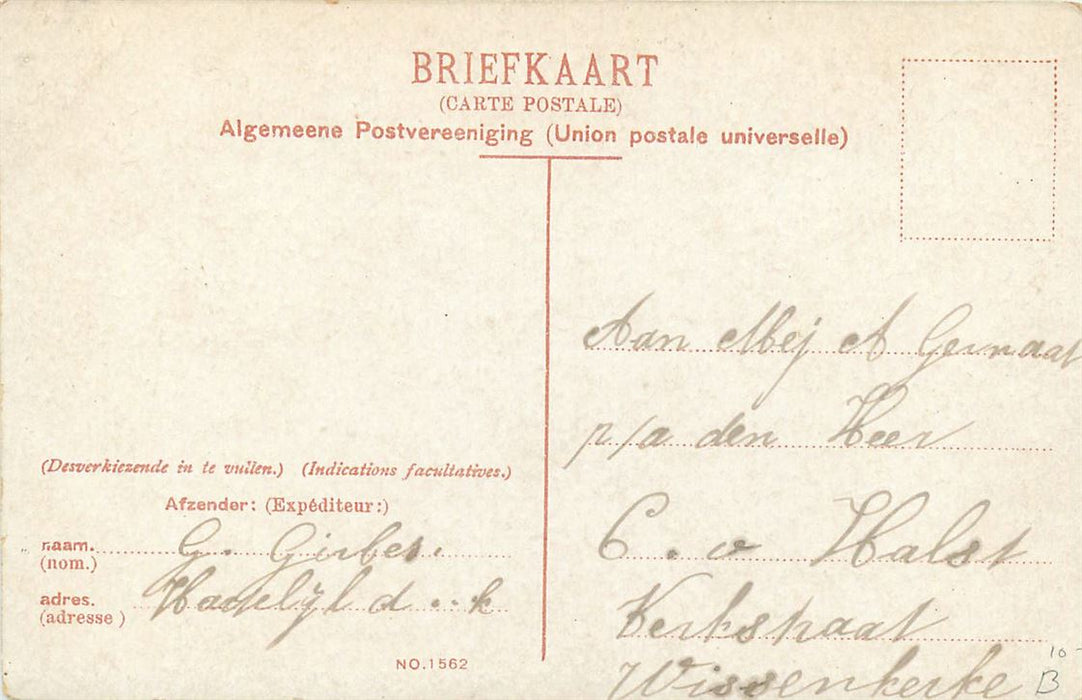 BRIEFKAART
(CARTE POSTALE)
Algemeene Postvereeniging (Union postale universelle)
Aan Mej A Gernaat
p/a den Heer
C. v Halst
Kerkstraat
Wissenkerke
(Desverkiezende in te vullen.) (Indications facultatives.)
Afzender: (Expéditeur:)
naam. G. Girbes.
(nom.)
adres.
(adresse)
NO.1562
10-
B